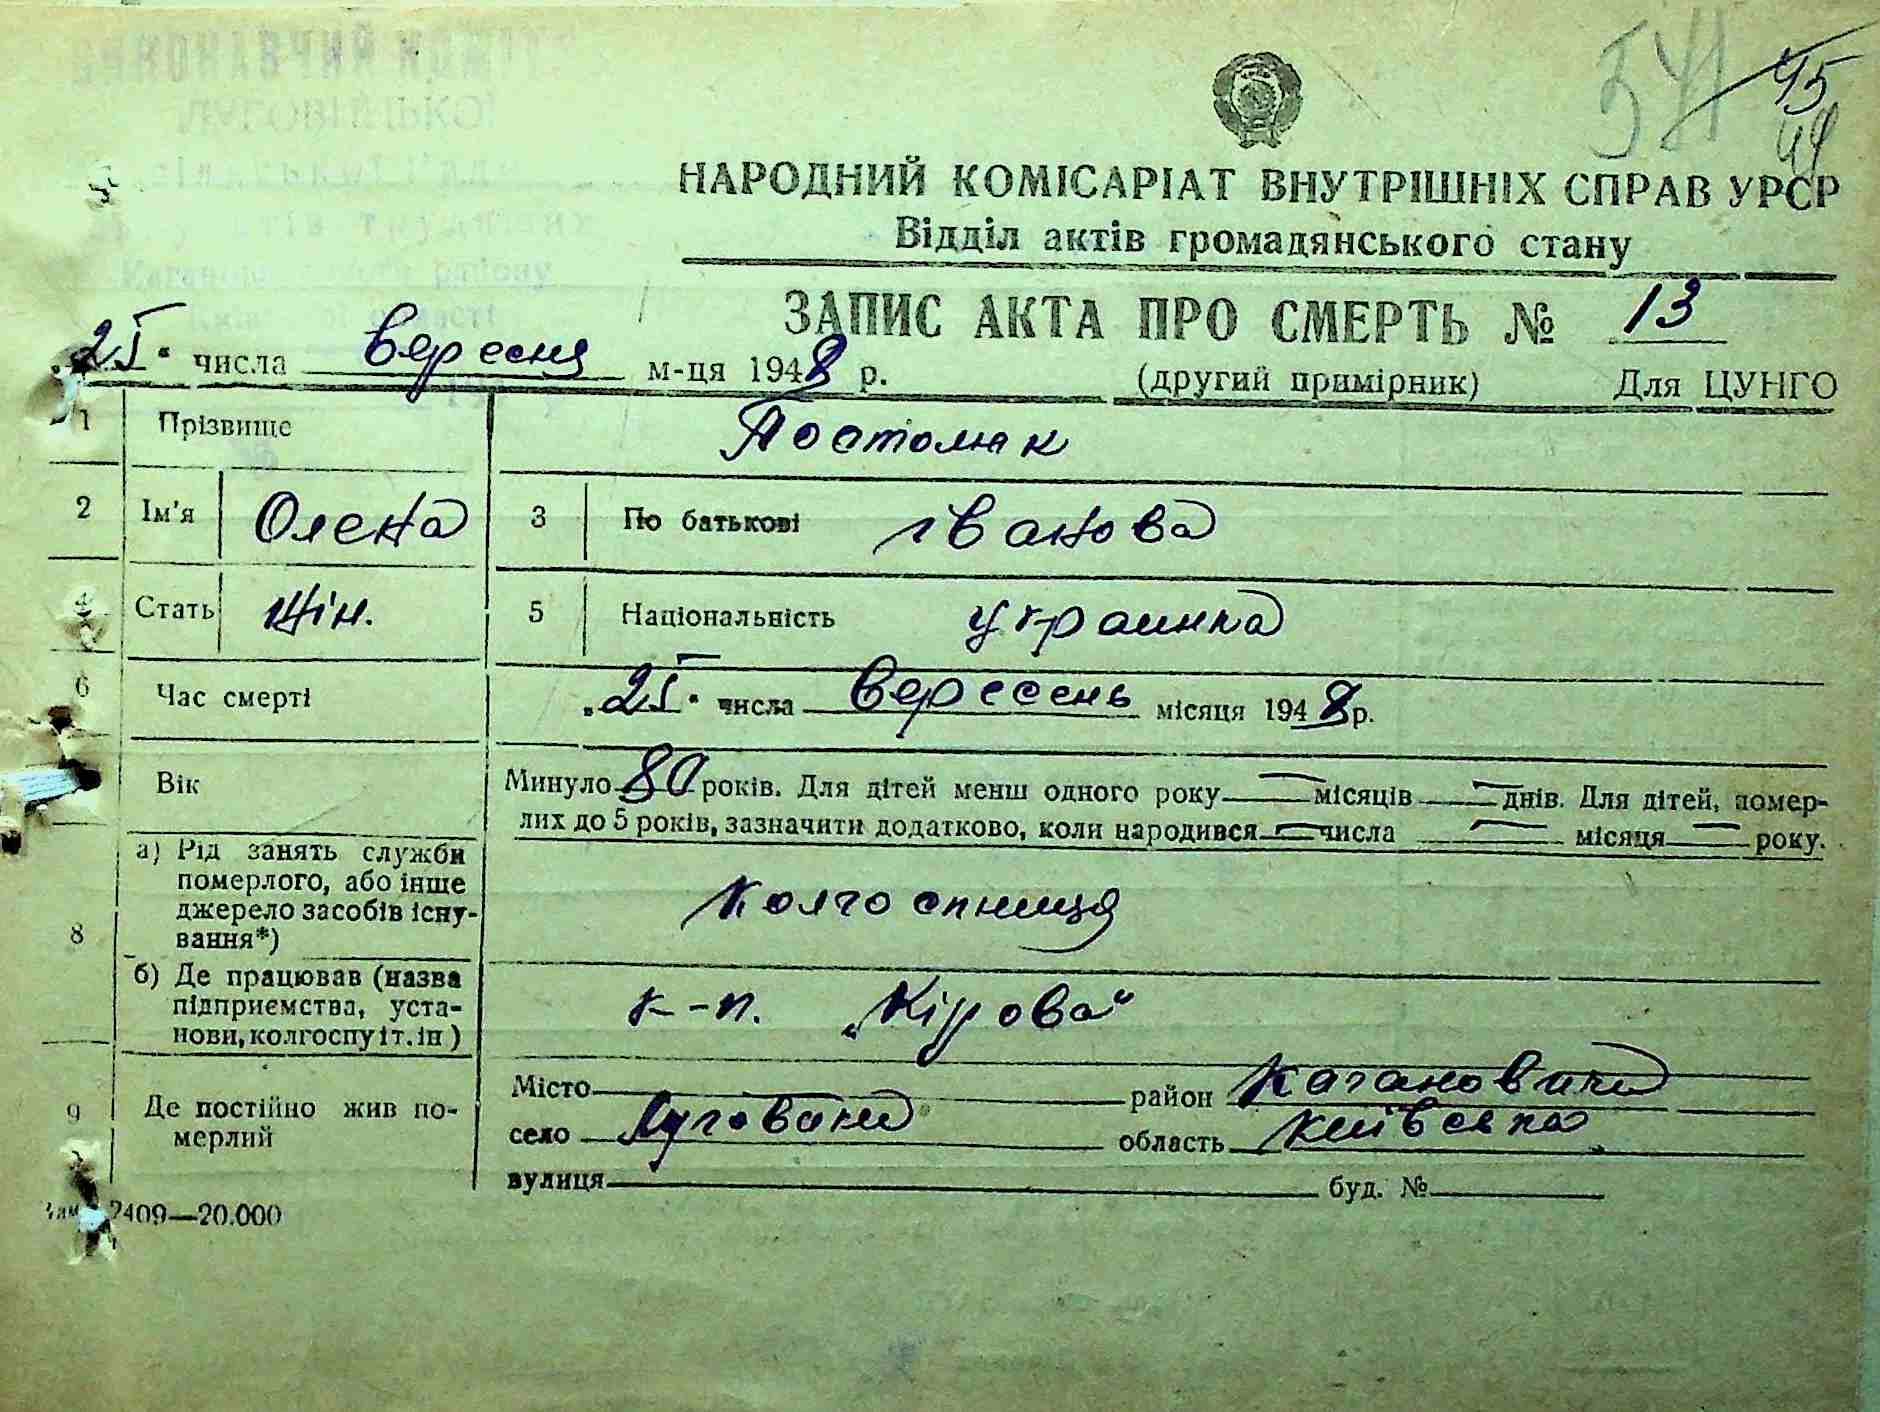 54 45
49
НАРОДНИЙ КОМІСАРІАТ ВНУТРІШНІХ СПРАВ УРСР
Відділ актів громадянського стану
ЗАПИС АКТА ПРО СМЕРТЬ № 13
„25" числа вересня м-ця 1948 р. (другий примірник) Для ЦУНГО
1 Прізвище Постолюк
2 Ім'я Олена 3 По батькові івонова
4 Стать жін. 5 Національність украинка
6 Час смерті „25" числа вересень місяця 1948 р.
Вік Минуло 80 років. Для дітей менш одного року — місяців — днів. Для дітей, помер-
лих до 5 років, зазначити додатково, коли народився — числа — місяця — року.
8 а) Рід занять служби
померлого, або інше
джерело засобів існу-
вання*)
Колгоспниця
б) Де працював (назва
підприємства, уста-
нови, колгоспу і т. ін)
к-п. „Кірова"
9 Де постійно жив по-
мерлий
Місто район Кагановичи
село Луговики область київська
вулиця буд. №
2409—20.000